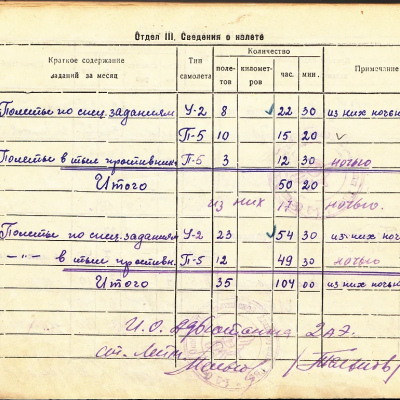 Отдел III. Сведения о налете
Краткое содержание заданий за месяц | Тип самолета | Количество | Примечание
полетов | километров | час. | мин.
Полеты по спец. заданиям У-2 8 22 30 из них ночью
П-5 10 15 20
Полеты в тыл противника П-5 3 12 30 ночью
Итого 50 20
из них 17 ночью.
Полеты по спец. заданиям У-2 23 54 30 из них ноч
-"- в тыл противн. П-5 12 49 30 ночью
Итого 35 104 00 из них ночью
И.О. Адъютанта 2 АЭ.
ст. Лейт.